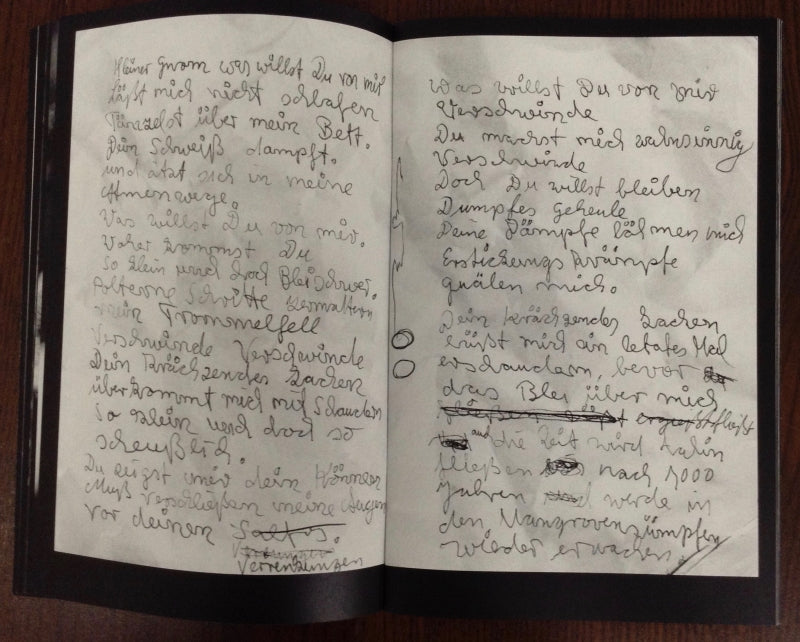 Kleiner Gnom was willst Du von mir
läßt mich nicht schlafen
Tänzelst über mein Bett.
Dein Schweiß dampft.
und ätzt sich in meine
Atmenwege.
Was willst Du von mir.
Woher kommst Du
So klein und doch Bleischwer.
Polternde Schritte zermaltern
mein Trommelfell
Verschwinde Verschwinde
Dein krächzendes Lachen
überkommt mich mit Schaudern
So klein und doch so
scheußlich.
Du zeigst mir dein Können
Muß verschließen meine Augen
vor deinen Saltos.
Verrenkungen
Was willst Du von mir
Verschwinde
Du machst mich wahnsinnig
Verschwinde
Doch Du willst bleiben
Dumpfes Geheule
Deine Dämpfe lähmen mich
Erstickungskrämpfe
quälen mich.
Dein krächzendes Lachen
läßt mich ein letztes Mal
erschaudern, bevor
das Blei über mich
fließt
auch die Zeit wird dahin
fließen nach 1000
Jahren werde in
den Mangrovensümpfen
wieder erwachen.